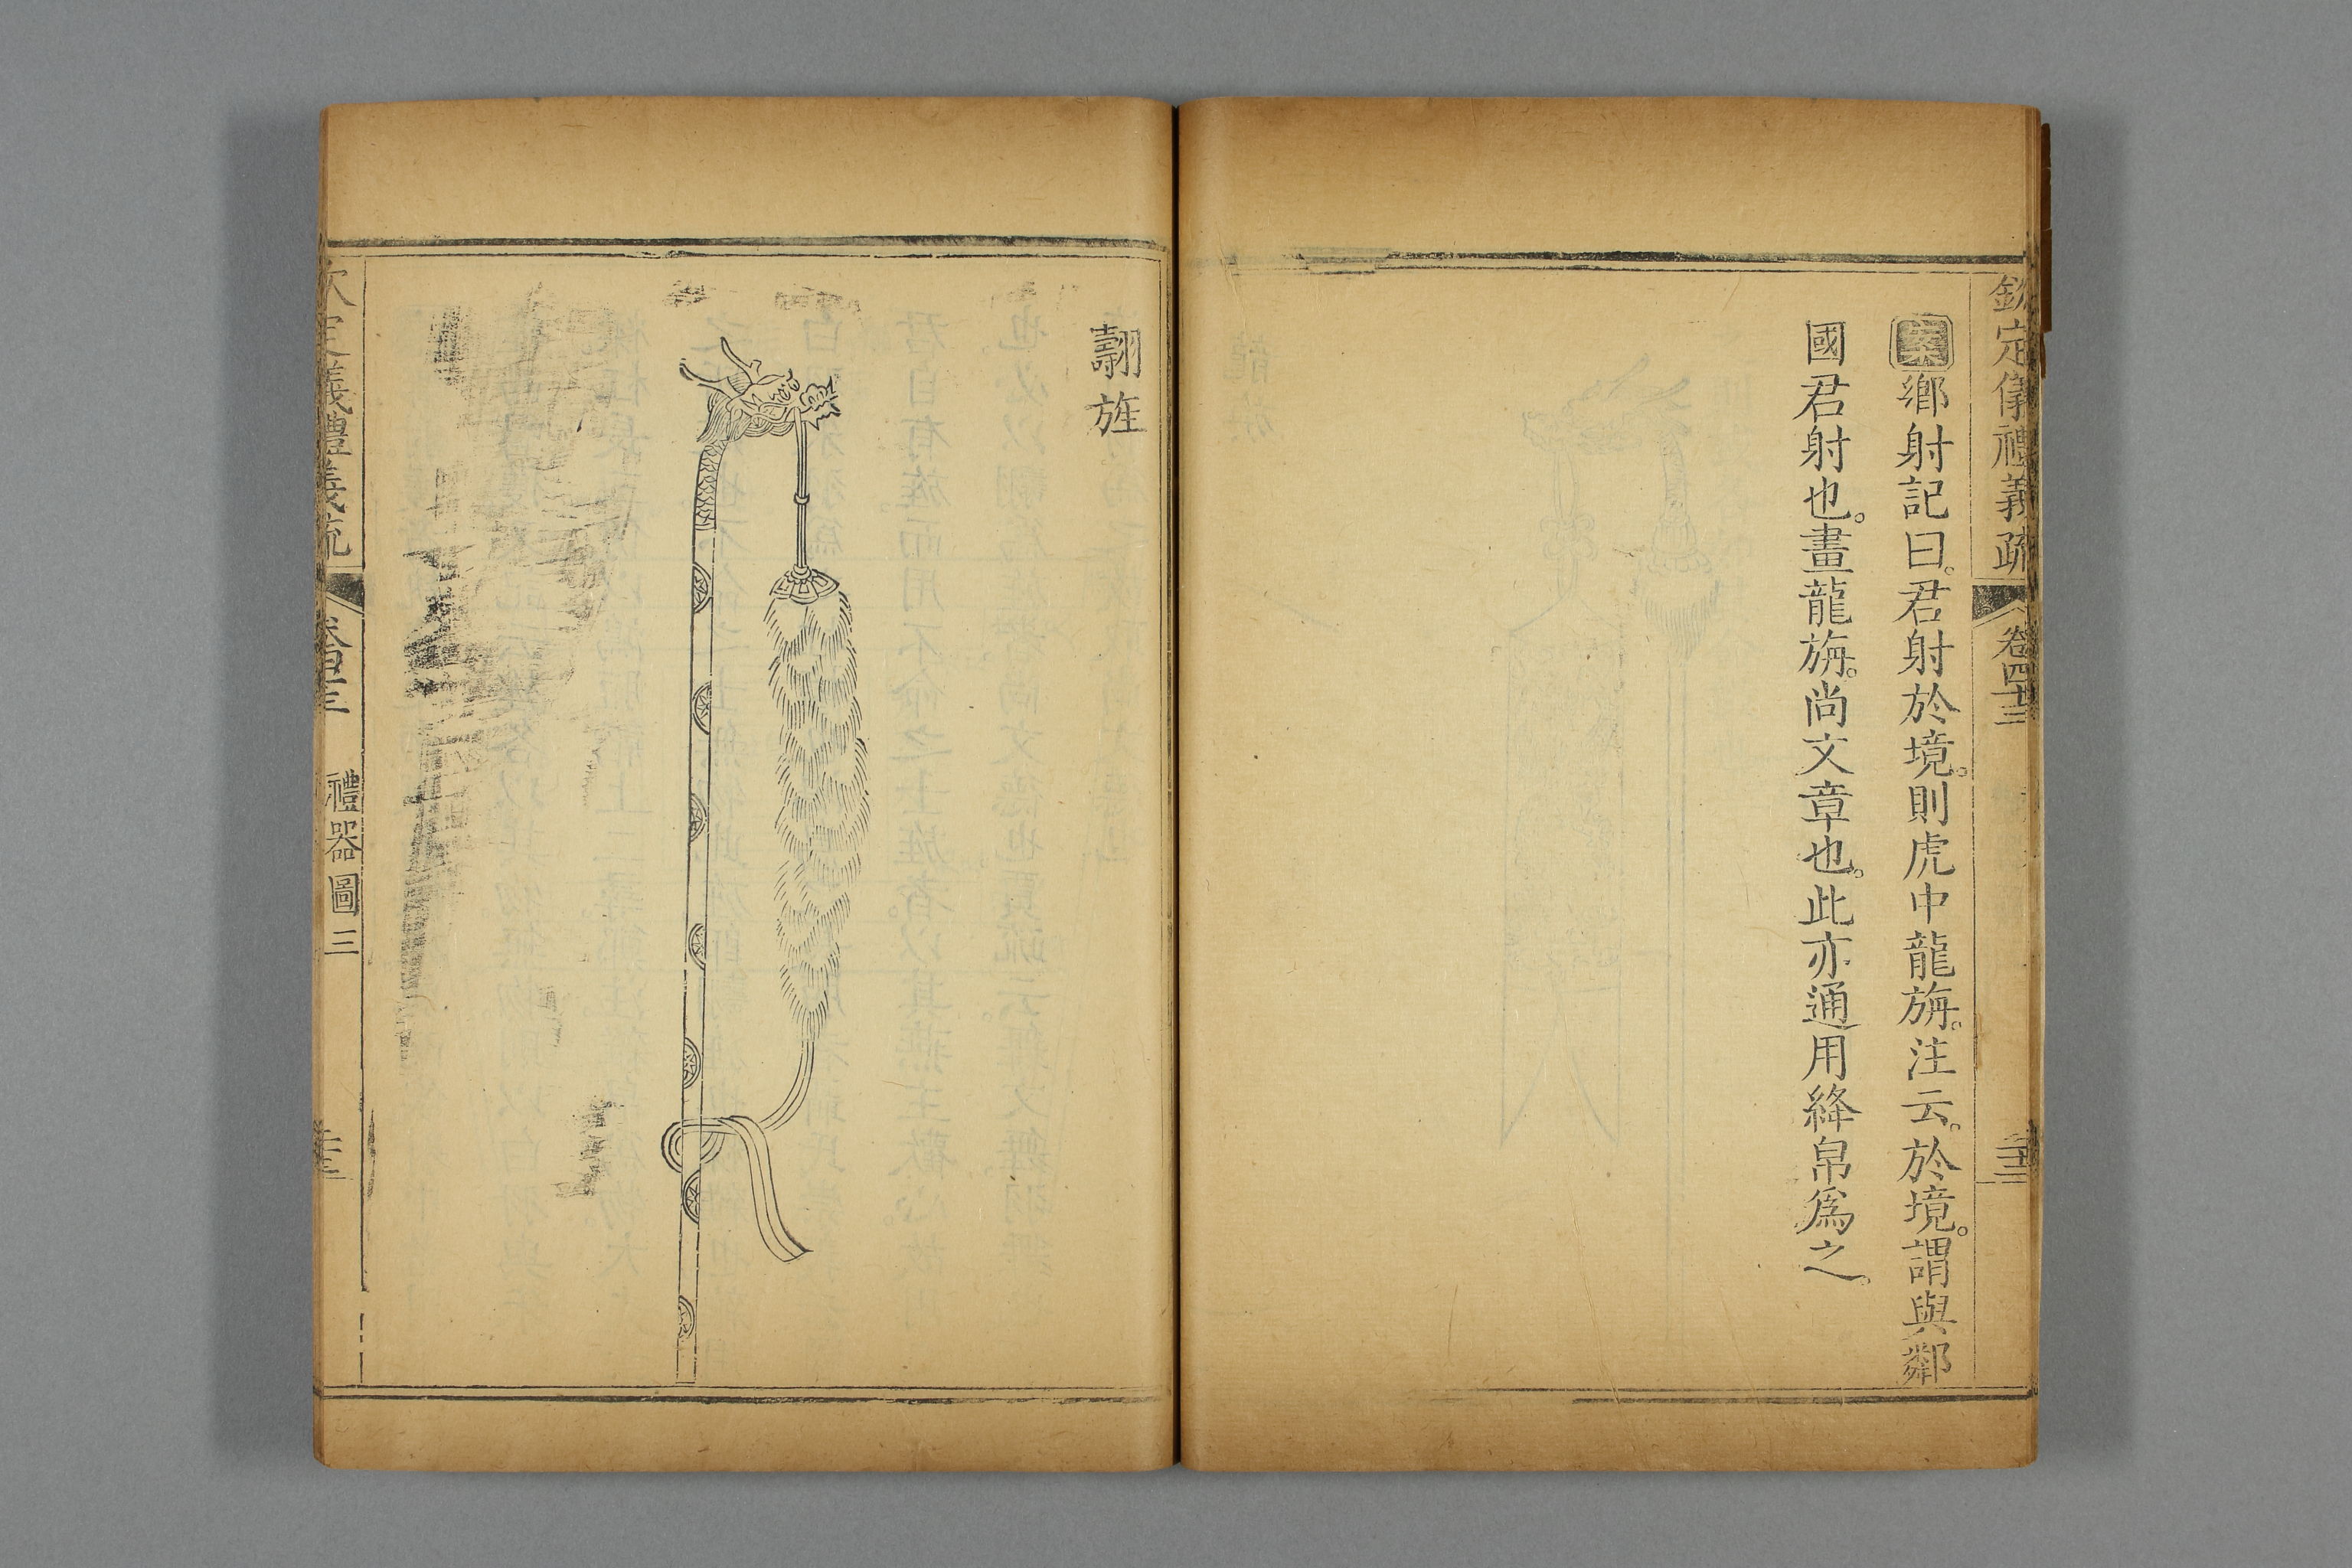 欽定儀禮義疏 卷四十三
案鄉射記曰。君射於境。則虎中龍旜。注云。於境。謂與鄰
國君射也。畫龍旜。尚文章也。此亦通用絳帛爲之。
翿旌
欽定儀禮義疏 卷四十三 禮器圖三